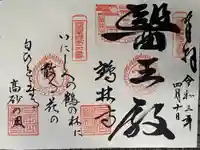 奉拝
令和三年
四月十日
醫王殿
鶴林寺
いにしへの鶴の林に
散る花の
白ひとよする
高砂の風